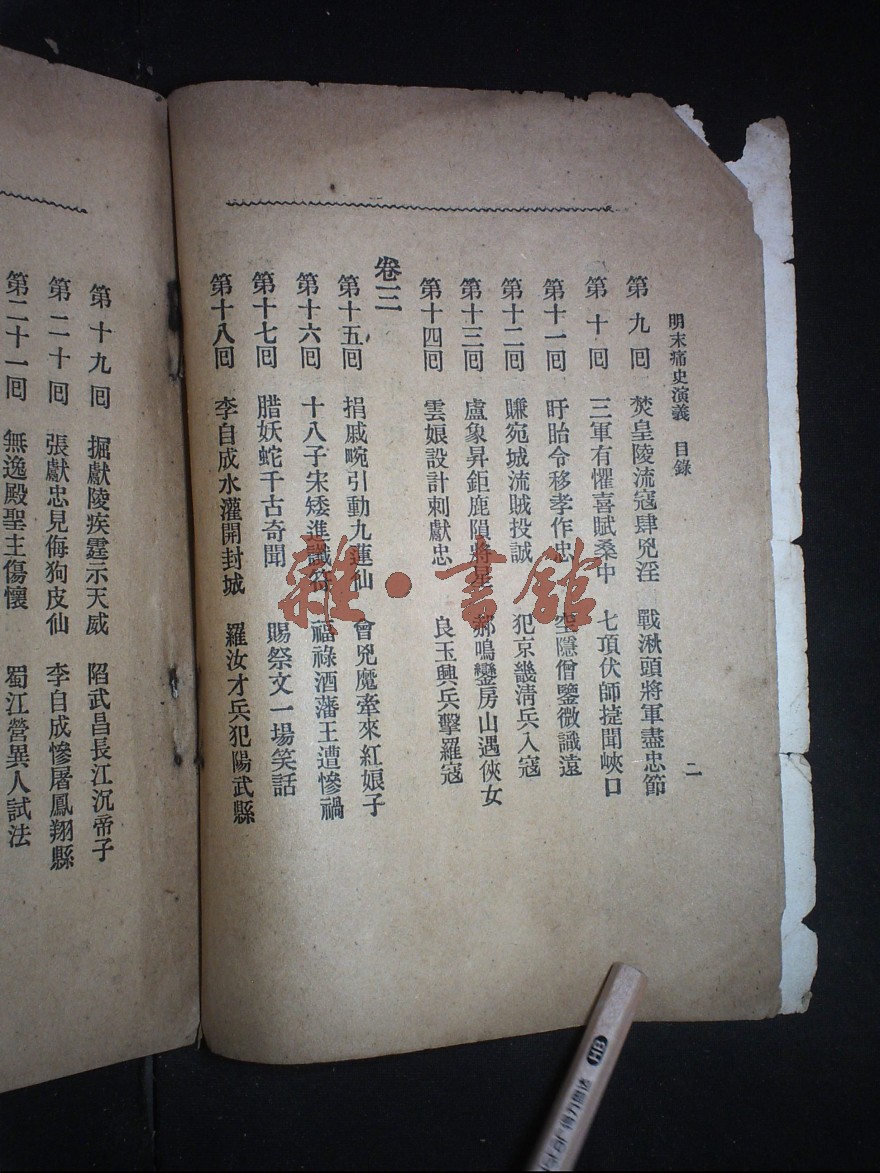 明末痛史演義 目錄
二
第九囘 焚皇陵流寇肆兇淫 戰湫頭將軍盡忠節
第十囘 三軍有懼喜賦桑中 七項伏師捷聞峽口
第十一囘 盱眙令移孝作忠 空隱僧鑒微識遠
第十二囘 賺宛城流賊投誠 犯京畿淸兵入寇
第十三囘 盧象昇鉅鹿隕將星 郝鳴鑾房山遇俠女
第十四囘 雲娘設計刺獻忠 良玉興兵擊羅寇
卷三
第十五囘 捐戚畹引動九蓮仙 會兇魔牽來紅娘子
第十六囘 十八子宋矮進讖符 福祿酒藩王遭慘禍
第十七囘 腊妖蛇千古奇聞 賜祭文一場笑話
第十八囘 李自成水灌開封城 羅汝才兵犯陽武縣
第十九囘 掘獻陵疾霆示天威 陷武昌長江沉帝子
第二十囘 張獻忠見侮狗皮仙 李自成慘屠鳳翔縣
第二十一囘 無逸殿聖主傷懷 蜀江營異人試法
雜·書館
HB